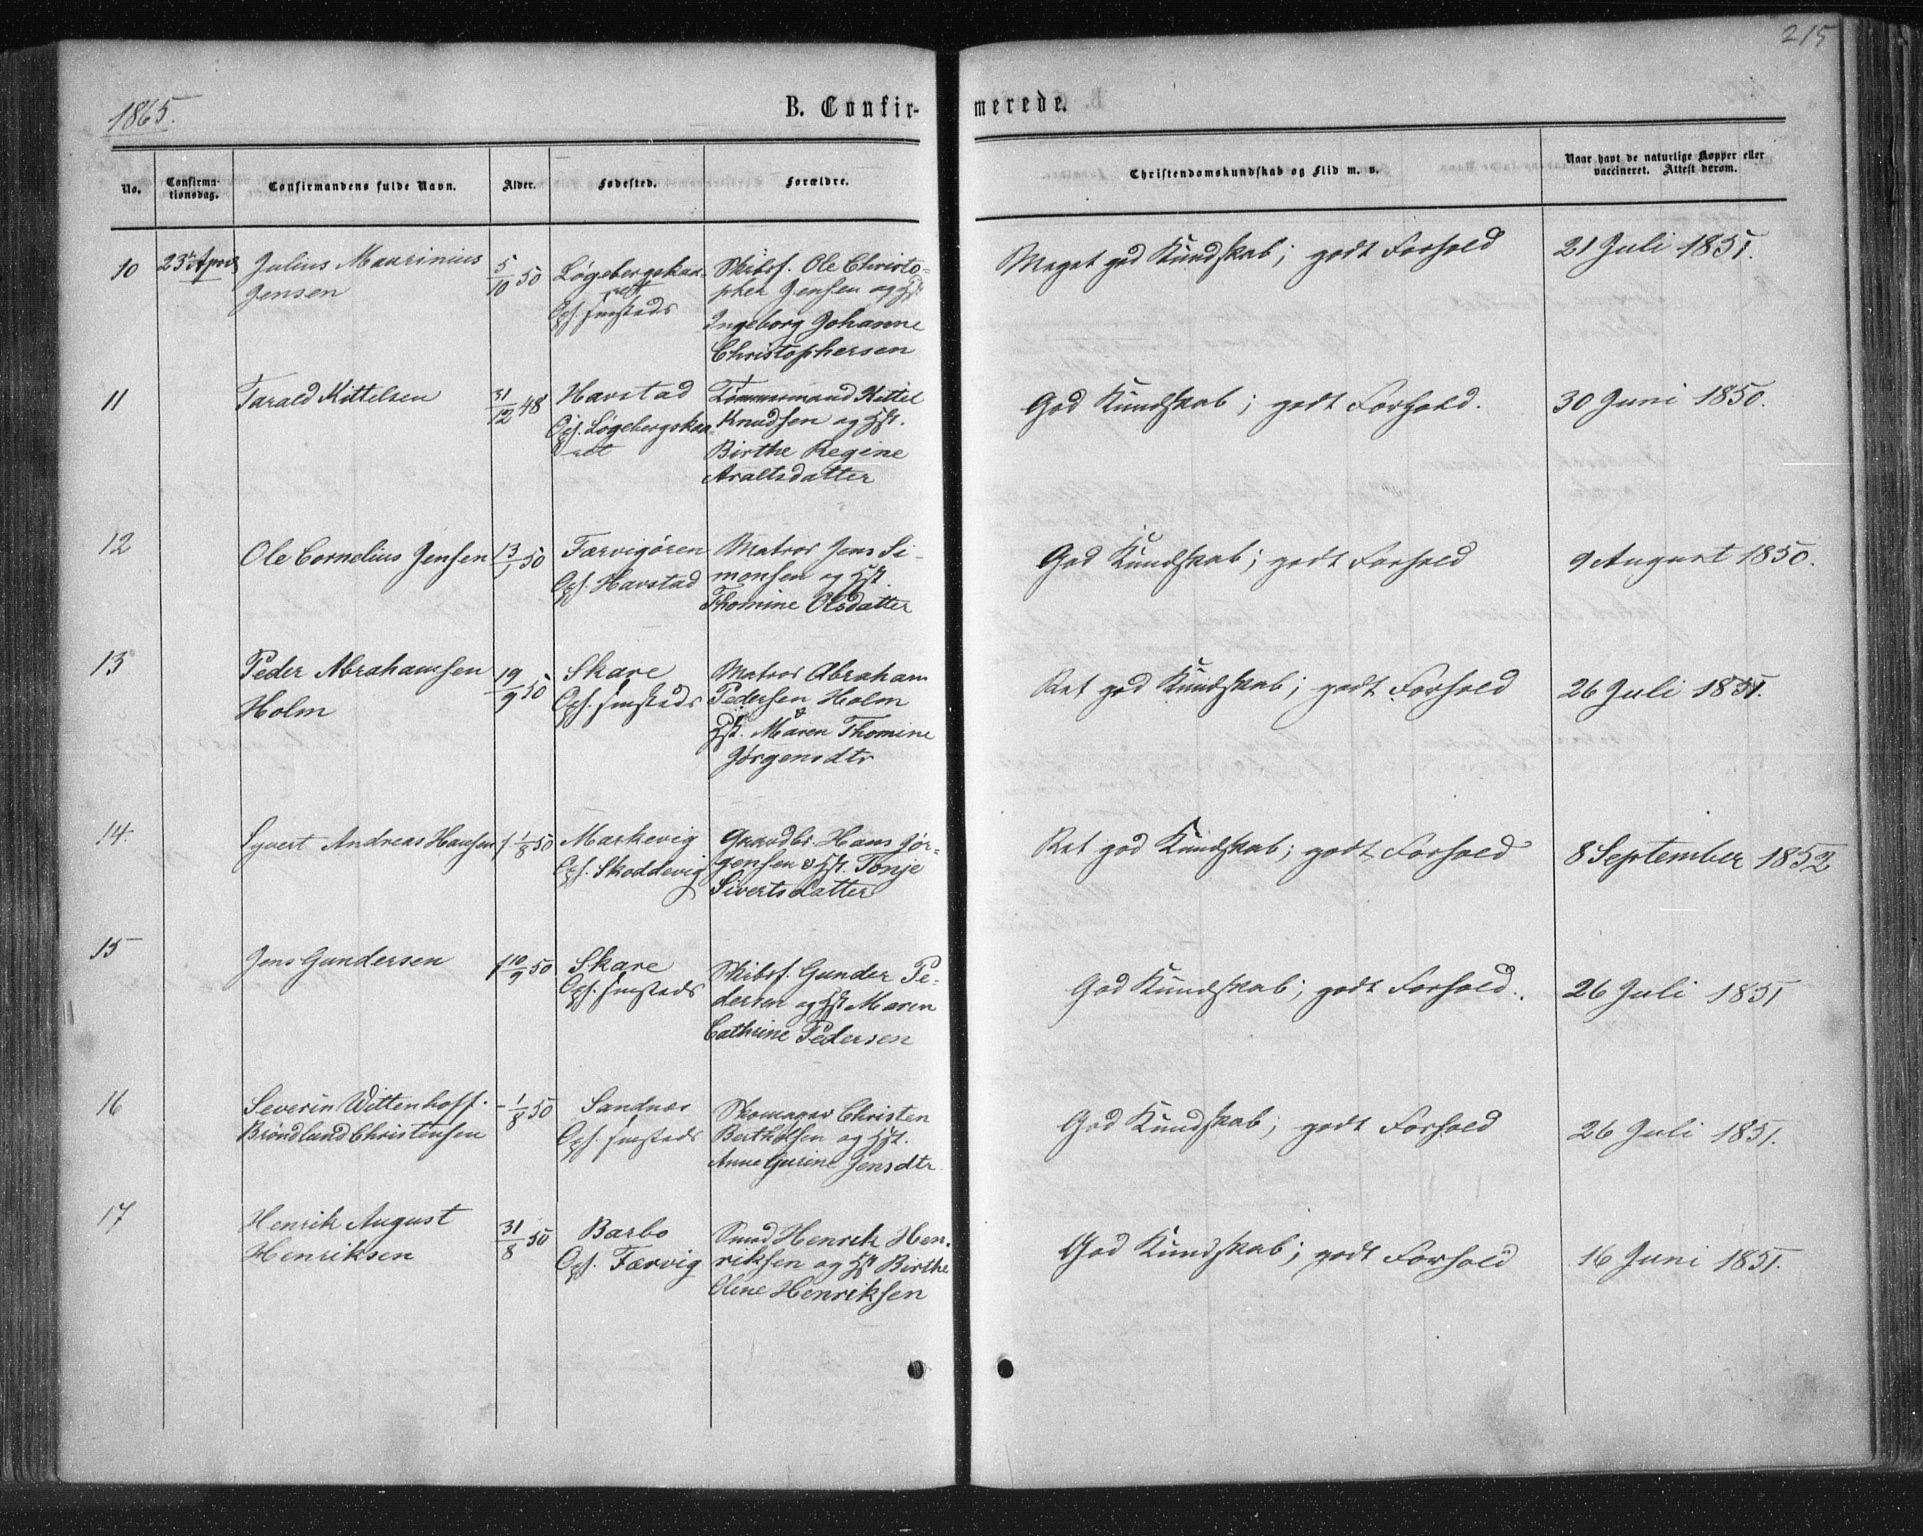 215
1865.
B. Confirmerede.
No.
Confirmationsdag.
Confirmandens fulde Navn.
Alder.
Fødested.
Forældre.
Christendomskundskab og Flid m. v.
Naar havt de naturlige Kopper eller vaccineret. Attest derom.
10
23de April
Julius Maurinius
Jensen
5/10 50
Løgebergskaa-
ret
Oph. smsteds
Skibsf. Ole Christo-
pher Jensen og Hst.
Ingeborg Johanne
Christophersen
Meget god Kundskab; godt Forhold
21 Juli 1851.
11
Tarald Kittelsen
31/12 48
Havstad
Oph. Løgebergskaa-
ret
Tømmermand Kittel
Knudsen og Hst.
Birthe Regine
Araltsdatter
God Kundskab; godt Forhold.
30 Juni 1850.
12
Ole Cornelius Jensen
13/1 50
Færvigøren
Oph. Havstad
Matros Jens Si-
monsen og Hst.
Thomine Olsdatter
God Kundskab; godt Forhold
9 August 1850.
13
Peder Abrahamsen
Holm
19/9 50
Skare
Oph. smsteds
Matros Abraham
Pedersen Holm
Hst. Maren Thomine
Jørgensdtr
Ret god Kundskab; godt Forhold
26 Juli 1851.
14.
Syvert Andreas Hansen
1/8 50
Markevig
Oph. Skoddevig
Gaardbr. Hans Jør-
gensen & Hst. Tonje
Sivertsdatter
Ret god Kundskab; godt Forhold
8 September 1852
15
Jens Gundersen
10/9 50
Skare
Oph. smsteds
Skibsf. Gunder Pe-
dersen og Hst Maren
Cathrine Pedersen
God Kundskab; godt Forhold.
26 Juli 1851
16
Severin Wittenhoff
Brøndlund Christensen
1/8 50
Sandnæs
Oph. smsteds
Skomager Christen
Berthelsen og Hst.
Anne Gurine Jensdtr
God Kundskab; godt Forhold
26 Juli 1851.
17
Henrik August
Henriksen
31/8 50
Barbo
Oph. Færvig
Smed Henrik Hen-
riksen og Hst Birthe
Oline Henriksen
God Kundskab; godt Forhold
16 Juni 1851.